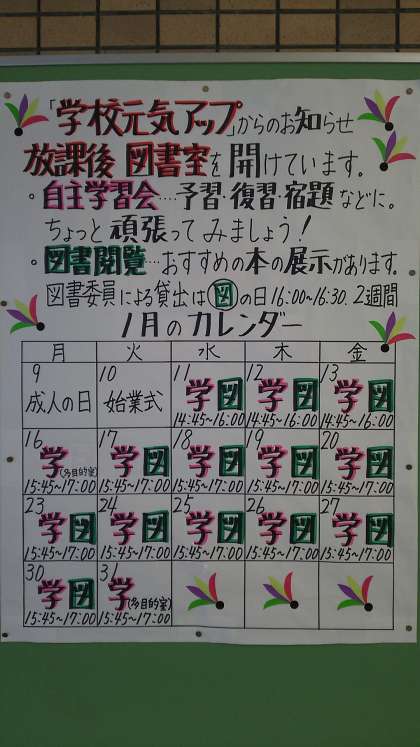 「学校元気アップ」からのお知らせ
放課後 図書室を開けています。
・自主学習会…予習・復習・宿題などに。
ちょっと頑張ってみましょう!
・図書閲覧…おすすめの本の展示があります。
図書委員による貸出は図の日16:00~16:30. 2週間
1月のカレンダー
月 火 水 木 金
9 10 11 12 13
成人の日 始業式 学図 学図 学図
14:45~16:00 14:45~16:00 14:45~16:00
16 17 18 19 20
学(多目的室) 学図 学図 学図 学図
15:45~17:00 15:45~17:00 15:45~17:00 15:45~17:00 15:45~17:00
23 24 25 26 27
学図 学図 学図 学図 学図
15:45~17:00 15:45~17:00 15:45~17:00 15:45~17:00 15:45~17:00
30 31
学図 学(多目的室)
15:45~17:00 15:45~17:00